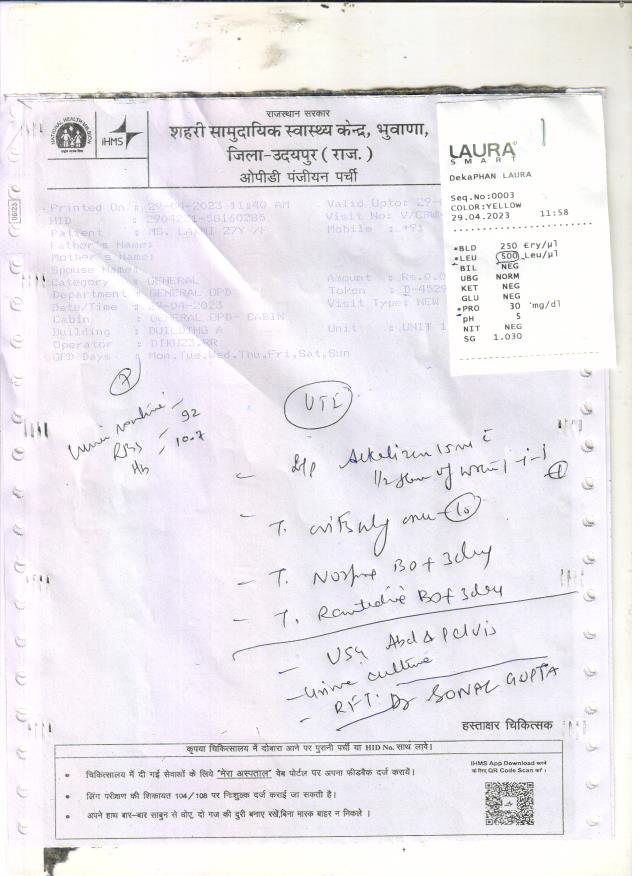 NATIONAL HEALTH MISSION
iHMS
राजस्थान सरकार
शहरी सामुदायिक स्वास्थ्य केन्द्र, भुवाणा,
जिला-उदयपुर ( राज. )
ओपीडी पंजीयन पर्ची
Printed On : 29-04-2023 11:40 AM
Valid Upto: 29-0
HID
Visit No: V/CBW
Patient : MS. LAXMI 27Y /F
Mobile : +91
Father's Name:
Mother's Name:
Spouse Name:
Category : GENERAL
Amount : Rs.0.0
Department : GENERAL OPD
Token : D-4529
Date/Time : 29-04-2023
Visit Type: NEW
Cabin : GENERAL OPD- CABIN
Building : BUILDING A
Unit : UNIT 1
Operator : DIKU23.RR
OPD Days : Mon,Tue,Wed,Thu,Fri,Sat,Sun
LAURA
SMART
DekaPHAN LAURA
Seq.No:0003
COLOR:YELLOW
29.04.2023 11:58
*BLD 250 Ery/µl
*LEU 500 Leu/µl
BIL NEG
UBG NORM
KET NEG
GLU NEG
*PRO 30 mg/dl
pH 5
NIT NEG
SG 1.030
RBS - 92
Hb - 10.7
UTI
1/2 of
- T.
- T. BD + 3day
- T. BD + 3day
- USG Abd & Pelvis
- Urine culture
- RFT. Dr SONAL GUPTA
हस्ताक्षर चिकित्सक
कृपया चिकित्सालय में दोबारा आने पर पुरानी पर्ची या HID No. साथ लावे।
• चिकित्सालय में दी गई सेवाओं के लिये "मेरा अस्पताल" वेब पोर्टल पर अपना फीडबैक दर्ज करायें।
• लिंग परीक्षण की शिकायत 104/108 पर निःशुल्क दर्ज कराई जा सकती है।
• अपने हाथ बार-बार साबुन से धोए, दो गज की दुरी बनाए रखें,बिना मास्क बाहर न निकले ।
IHMS App Download करने
के लिए QR Code Scan करें :